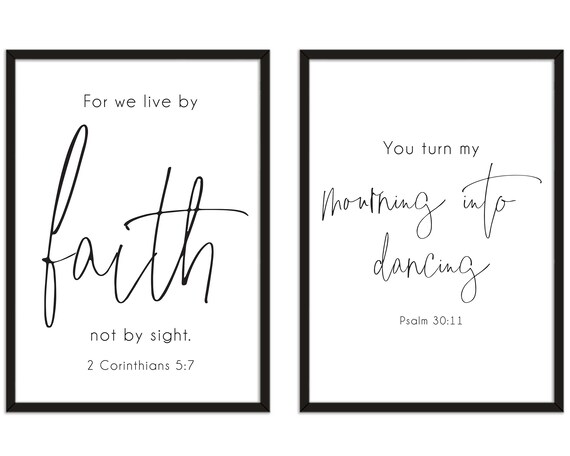 For we live by
faith
not by sight.
2 Corinthians 5:7
You turn my
mourning into
dancing
Psalm 30:11